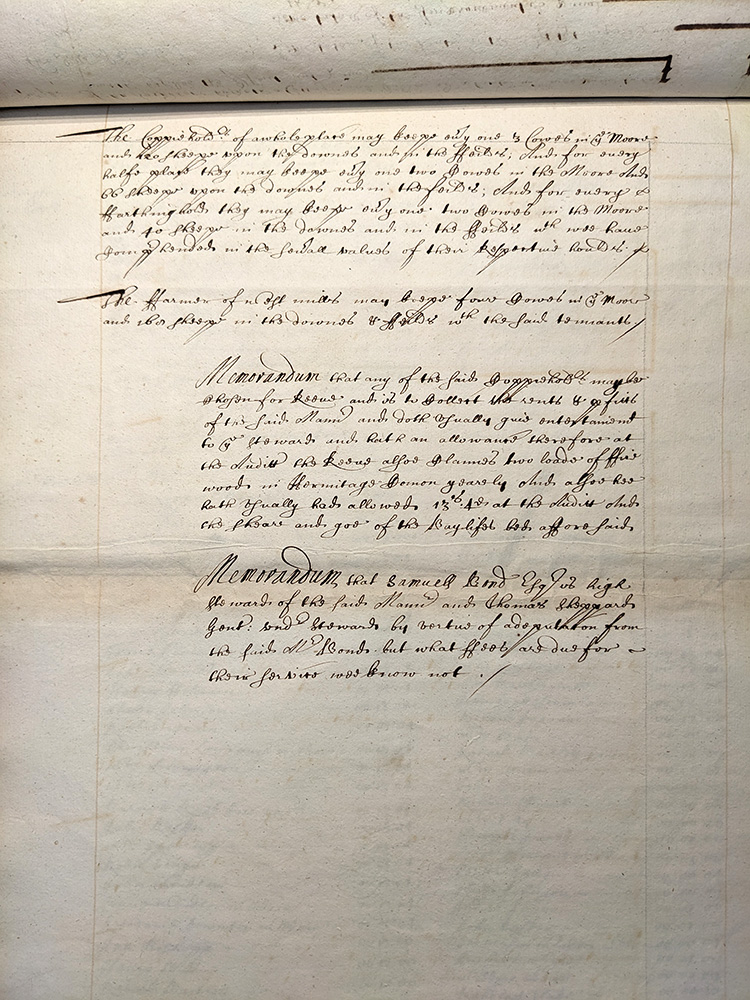 The Coppiehold.rs of a whole place may keepe euy one 3 Cowes in ye Moore
and 120 sheepe vpon the downes and in the ffeilds; And for euery
halfe place they may keepe euy one two Cowes in the Moore And
66 sheepe vpon the downes and in the feilds; And for euery
ffarthinghold they may keepe euy one two Cowes in the Moore
and 40 sheepe in the downes and in the ffeilds wch wee haue
Comp'hended in the seuall values of their Respectiue houlds.
The ffarmer of mills may keepe foure Cowes in ye Moore
and 160 sheepe in the downes & ffeilds wth the said tennants
Memorandum that any of the said Coppiehold.rs may be
Chosen for Reeue and is to Collect the rents & p'fitts
of the said Mannr and doth vsually giue entertainmt
to ye stewards and hath an allowance therefore at
the Auditt the Reeue alsoe Claimes two loads of ffire
wood in Hermitage Comon yearely And alsoe hee
hath vsually had allowed 13s: 4d at the Auditt And
the sheare and goe of the Baylifes bed afforesaid
Memorandum that Samuell Bond Esqr is high
steward of the said Mannr and Thomas Sheppard
Gent: vndr steward by vertue of a deputation from
the said Mr Bond but what ffees are due for
their seruice wee know not ./